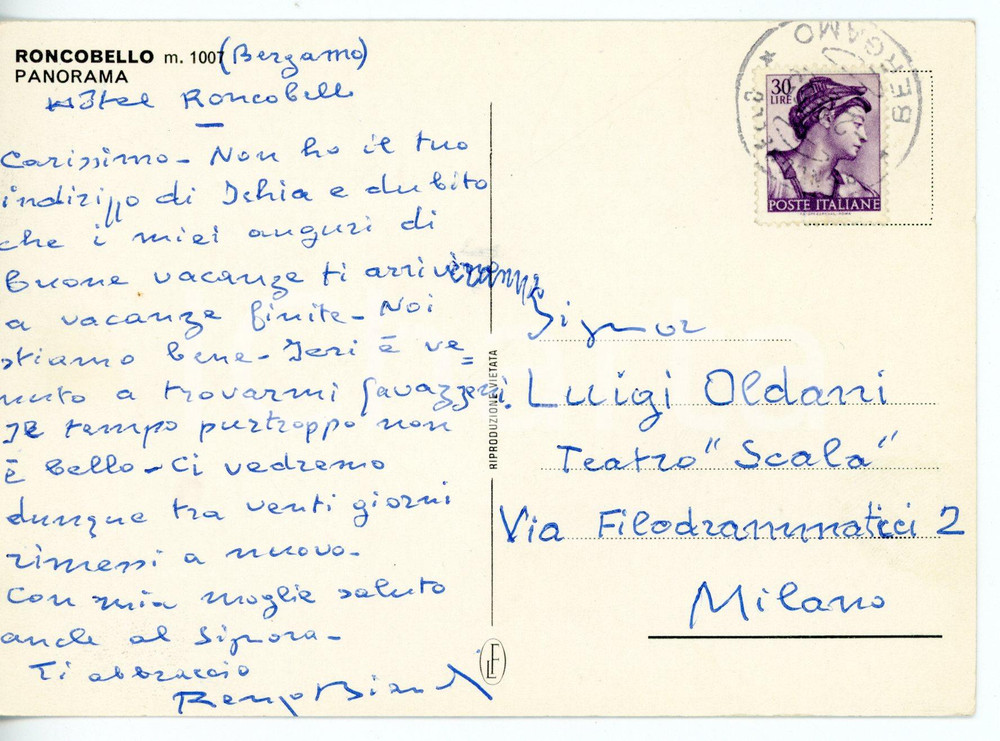 RONCOBELLO m. 1007 (Bergamo)
PANORAMA
Hôtel Roncobello
Carissimo - Non ho il tuo
indirizzo di Ischia e dubito
che i miei auguri di
buone vacanze ti arriveranno
a vacanze finite - Noi
stiamo bene - Ieri è ve=
nuto a trovarmi Gavazzeni.
Il tempo purtroppo non
è bello - Ci vedremo
dunque tra venti giorni
rimessi a nuovo -
Con mia moglie saluto
anche al Signora -
Ti abbraccio
Renzo Bianchi
RIPRODUZIONE VIETATA
BERGAMO
30
LIRE
POSTE ITALIANE
Signor
Luigi Oldani
Teatro "Scala"
Via Filodrammatici 2
Milano